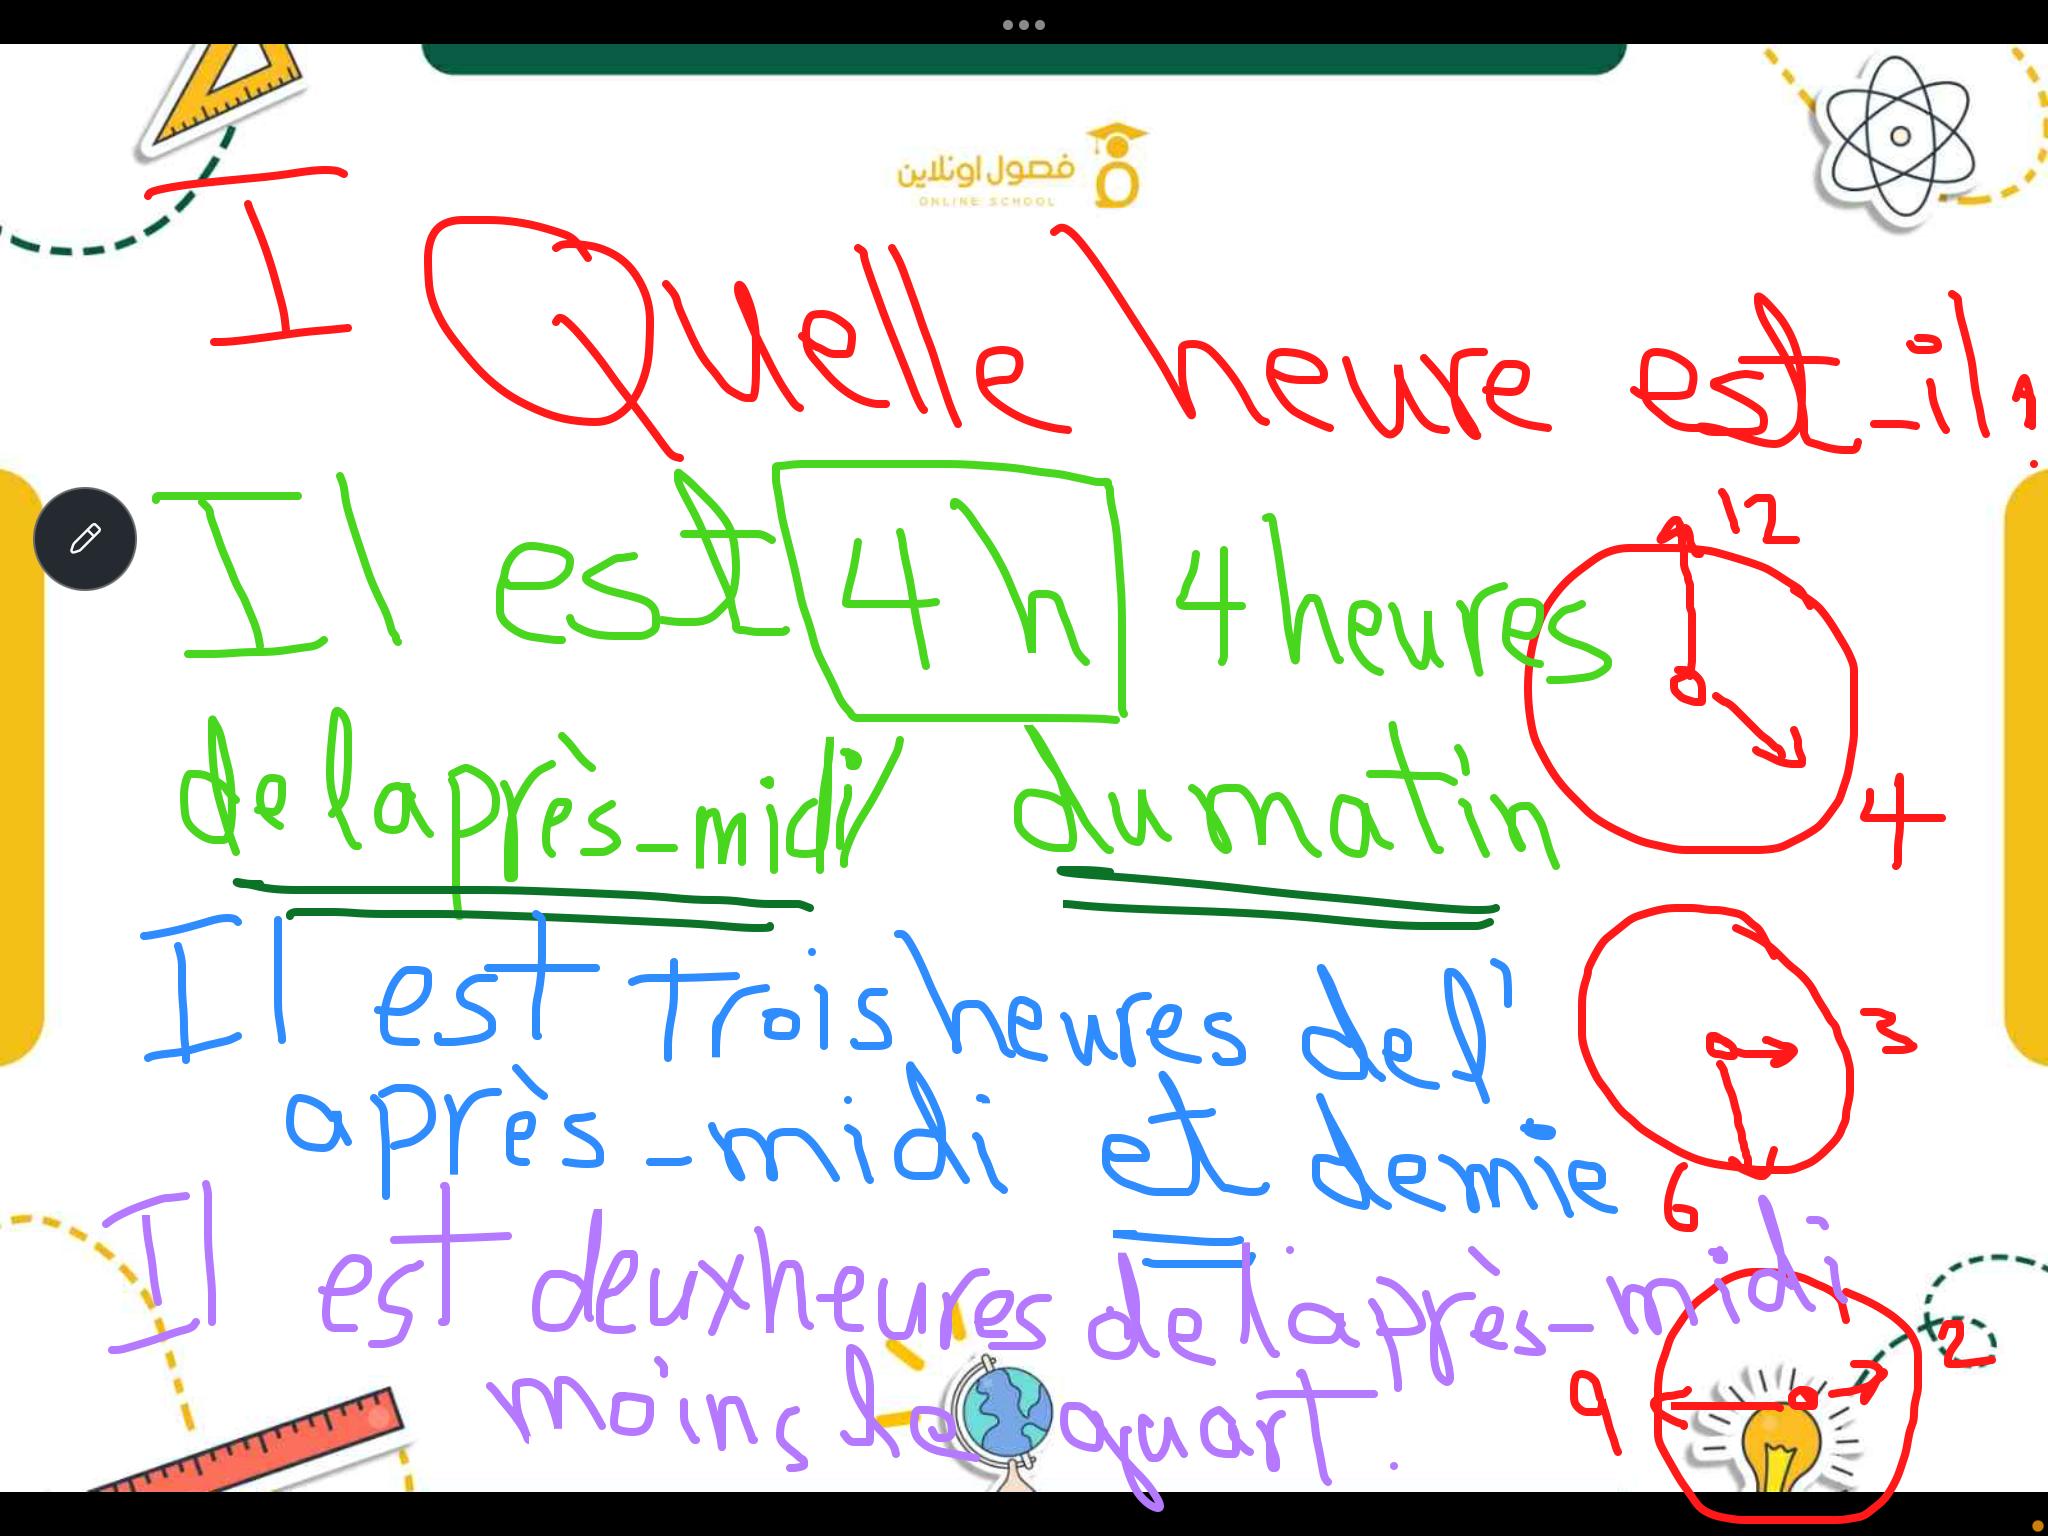 فصول اونلاين
ONLINE SCHOOL
I Quelle heure est-il?
Il est 4h 4 heures
12
de laprès-midi / du matin
4
Il est trois heures de l'
3
après-midi et demie
6
Il est deux heures de l'après-midi
2
moins le quart.
9